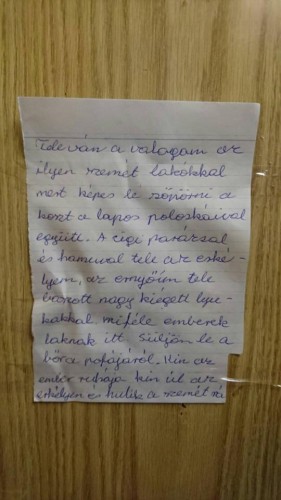 Tele ván a valagam az
ilyen szemét lakókkal
mert képes le söpörni a
koszt a lapos poloskáival
együtt. A cigi parázsal
és hamuval tele az erké-
lyem, az ernyőün tele
baszott nagy kiégett lyu-
kakkal miféle emberek
laknak itt. Süljön le a
bőra pofájáról. Kin az
ember ruhája kin ül az
erkélyen és hullik a szemét rá